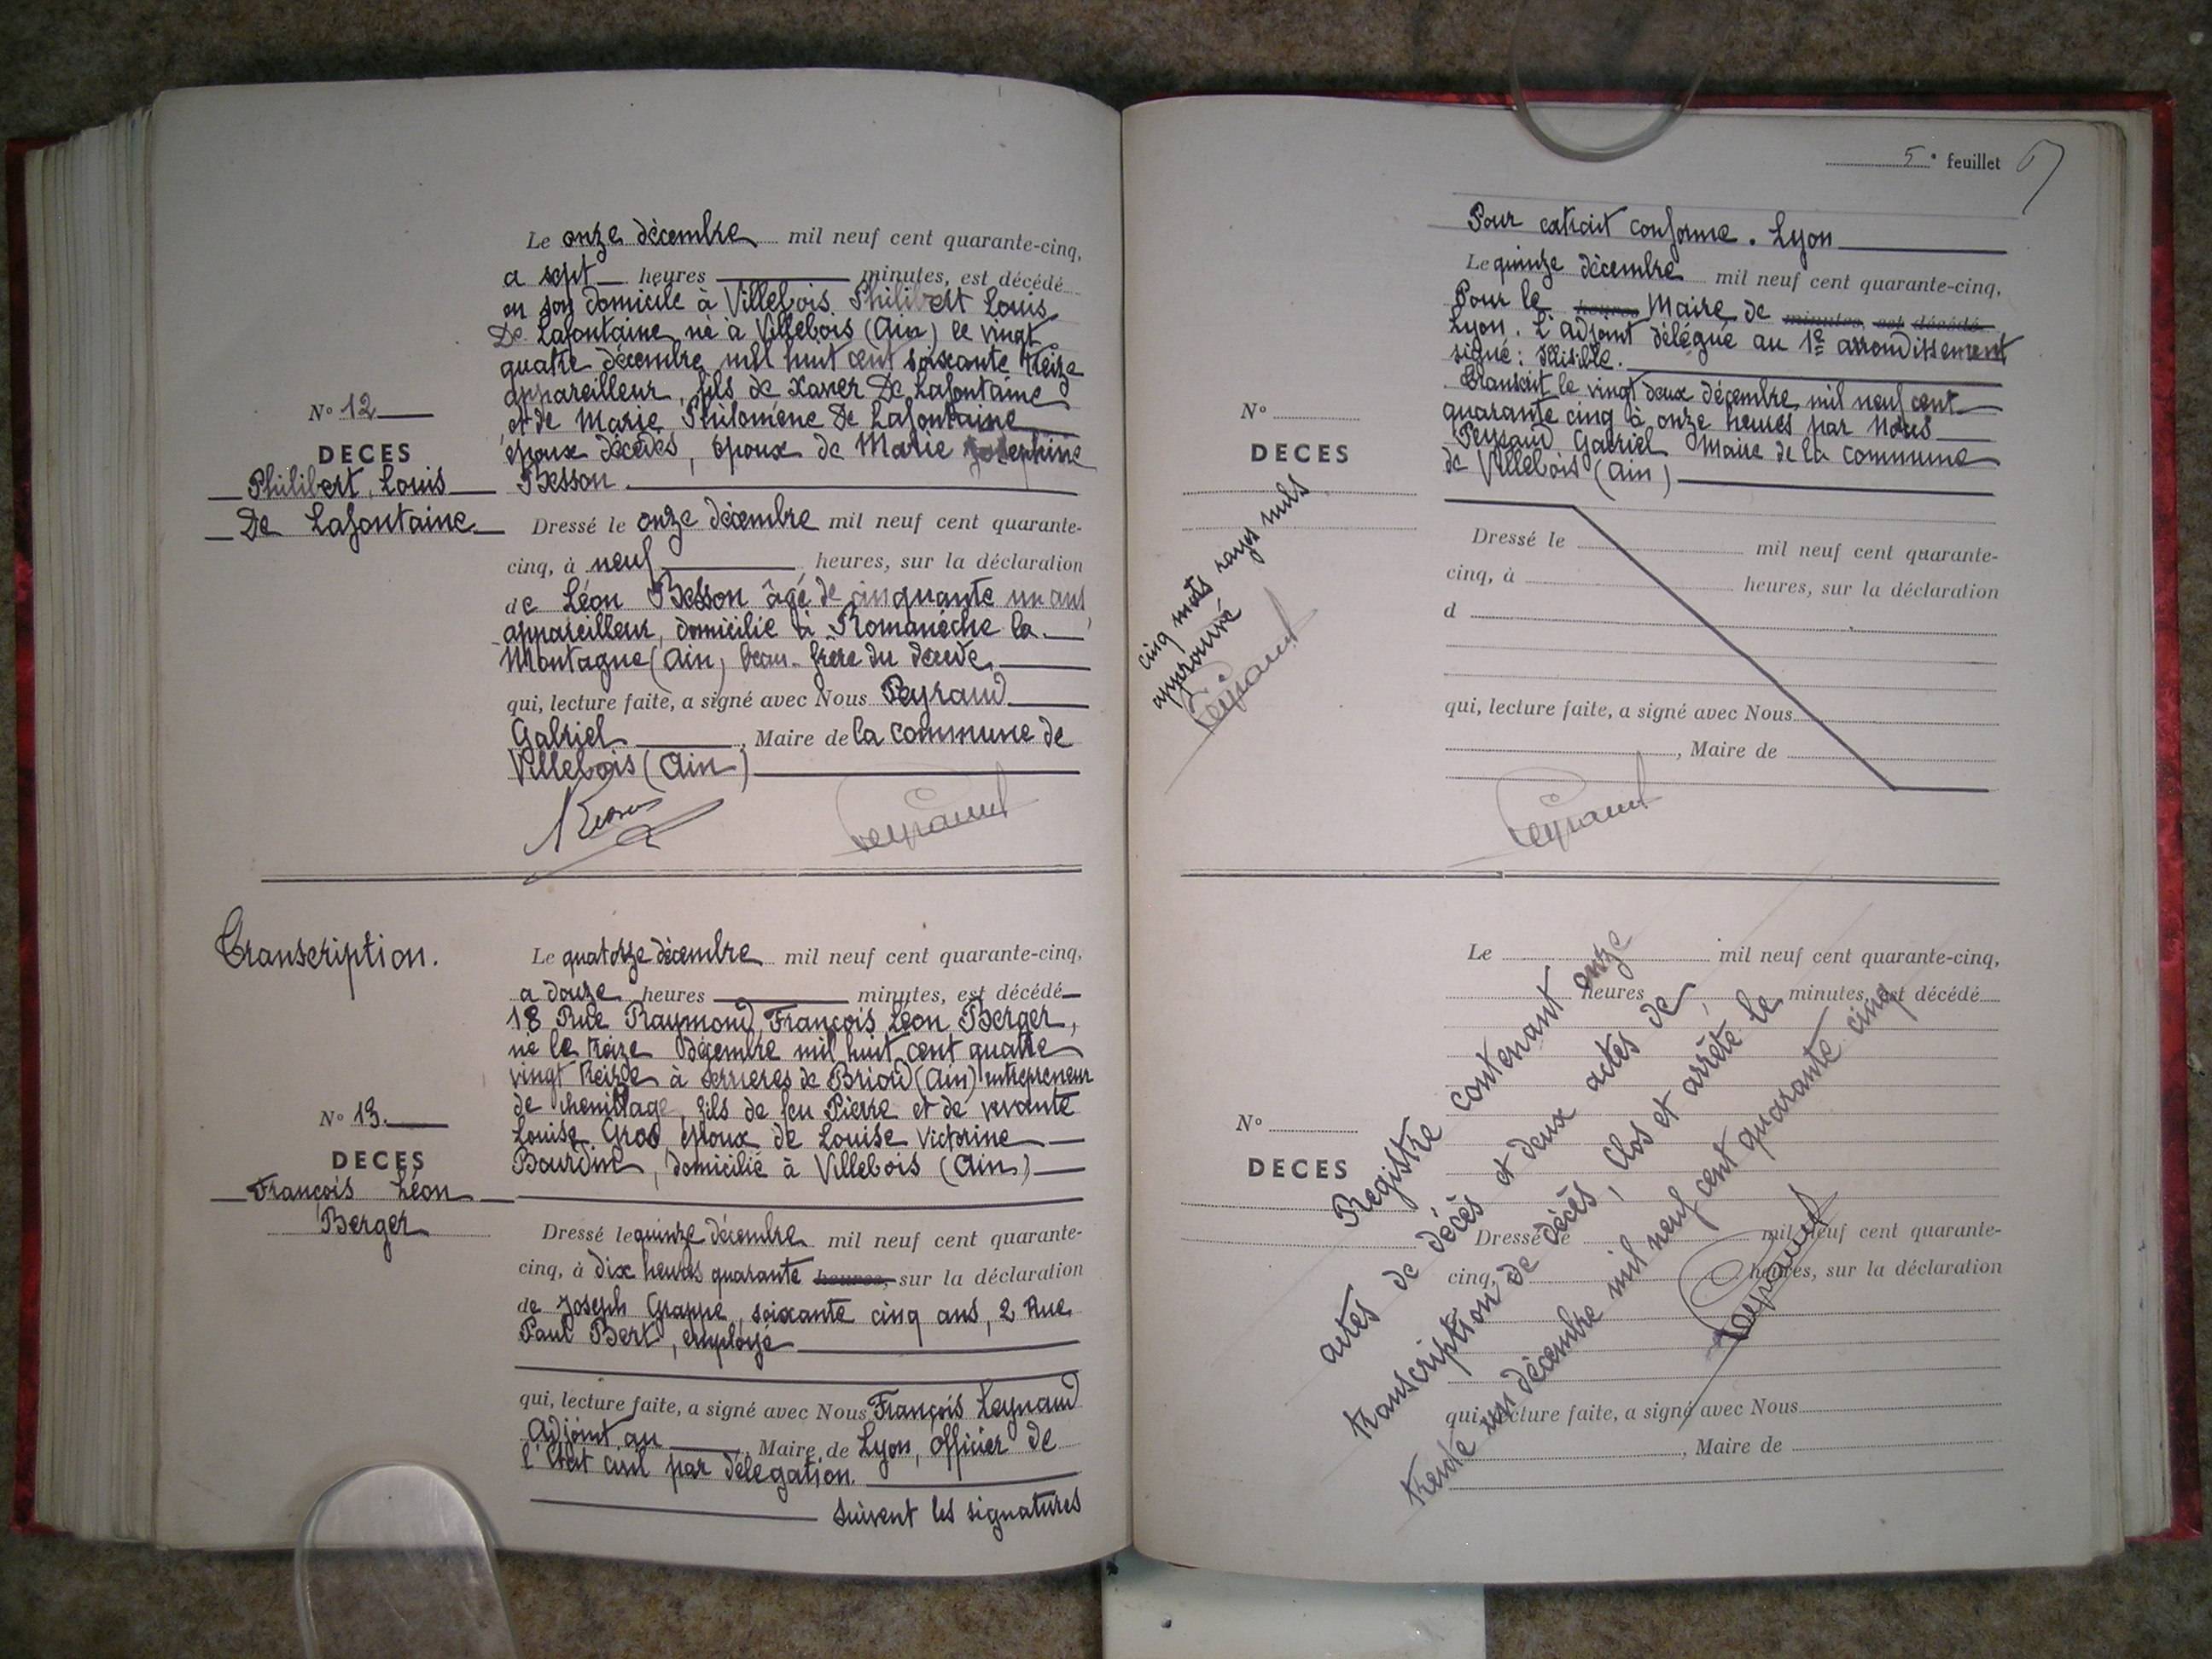 Le onze décembre mil neuf cent quarante-cinq,
a sept heures minutes, est décédé
en son domicile à Villebois Philibert Louis
De Lafontaine né à Villebois (Ain) le vingt
quatre décembre mil huit cent soixante treize
appareilleur, fils de Xavier De Lafontaine
et de Marie Philomène De Lafontaine
époux décédés, époux de Marie Josephine
Besson.
N° 12
DECES
Philibert, Louis
De Lafontaine
Dressé le onze décembre mil neuf cent quarante-
cinq, à neuf heures, sur la déclaration
de Léon Besson âgé de cinquante un ans
appareilleur, domicilié à Romanèche la
Montagne (Ain) beau-frère du décédé
qui, lecture faite, a signé avec Nous Peyraud
Gabriel, Maire de la commune de
Villebois (Ain)
Besson
Peyraud
Transcription.
Le quatorze décembre mil neuf cent quarante-cinq,
a douze heures minutes, est décédé
18 Rue Raymond, François Léon Berger,
né le treize décembre mil huit cent quatre
vingt treize à Serrières de Briord (Ain) entrepreneur
de chenillage, fils de feu Pierre et de vivante
Louise Gros époux de Louise Victorine
Bourdin, domicilié à Villebois (Ain)
N° 13.
DECES
François Léon
Berger
Dressé le quinze décembre mil neuf cent quarante-
cinq, à dix heures quarante heures, sur la déclaration
de Joseph Grappe, soixante cinq ans, 2 Rue
Paul Bert, employé
qui, lecture faite, a signé avec Nous François Leynaud
Adjoint au Maire de Lyon, officier de
l'Etat civil par délégation.
suivent les signatures
5e feuillet
Pour extrait conforme. Lyon
Le quinze décembre mil neuf cent quarante-cinq,
Pour le heures Maire de minutes, est décédé
Lyon. L'adjoint délégué au 1er arrondissement
signé: illisible.
Transcrit le vingt deux décembre mil neuf cent
quarante cinq à onze heures par Nous
Peyraud Gabriel Maire de la commune
de Villebois (Ain)
N°
DECES
cinq mots rayés nuls
approuvé
Peyraud
Dressé le mil neuf cent quarante-
cinq, à heures, sur la déclaration
d
qui, lecture faite, a signé avec Nous
, Maire de
Peyraud
Le mil neuf cent quarante-cinq,
heures minutes, est décédé
N°
DECES
Dressé le mil neuf cent quarante-
cinq, à heures, sur la déclaration
qui, lecture faite, a signé avec Nous
, Maire de
Registre contenant onze
actes de décès et deux actes de
transcription de décès, clos et arrêté le
trente un décembre mil neuf cent quarante cinq
Peyraud